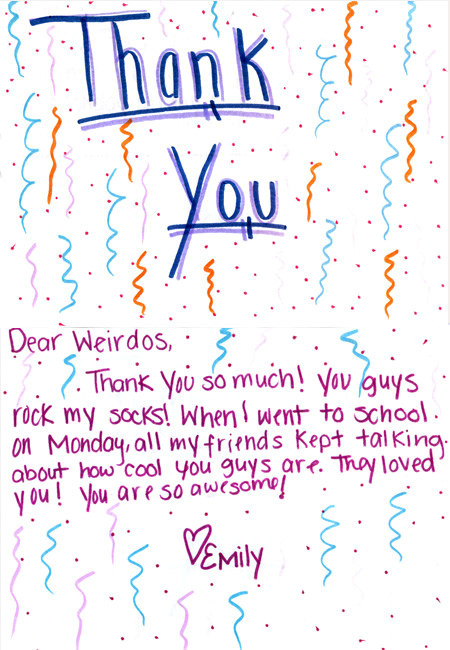 Thank
You
Dear Weirdos,
Thank You so much! You guys
rock my socks! When I went to school
on Monday, all my friends kept talking
about how cool you guys are. They loved
you! You are so awesome!
♡Emily